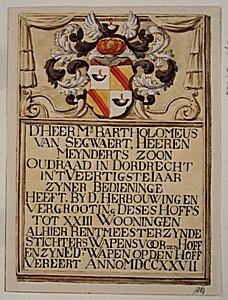 D'HEER Mr. BARTHOLOMEUS
VAN SEGWAERT, HEEREN
MEYNDERTS ZOON
OUDRAAD IN DORDRECHT
IN TVEERTIGSTE IAAR
ZYNER BEDIENINGE
HEEFT. BY D, HERBOUWING EN
VERGROOTING DESES HOFFS
TOT XXIII WOONINGEN
ALHIER RENTMEESTER ZYNDE
STICHTERS WAPENS VOOR DEN HOFF
EN ZYNE D.o WAPEN OP DEN HOFF
VEREERT ANNO MDCCXXVII